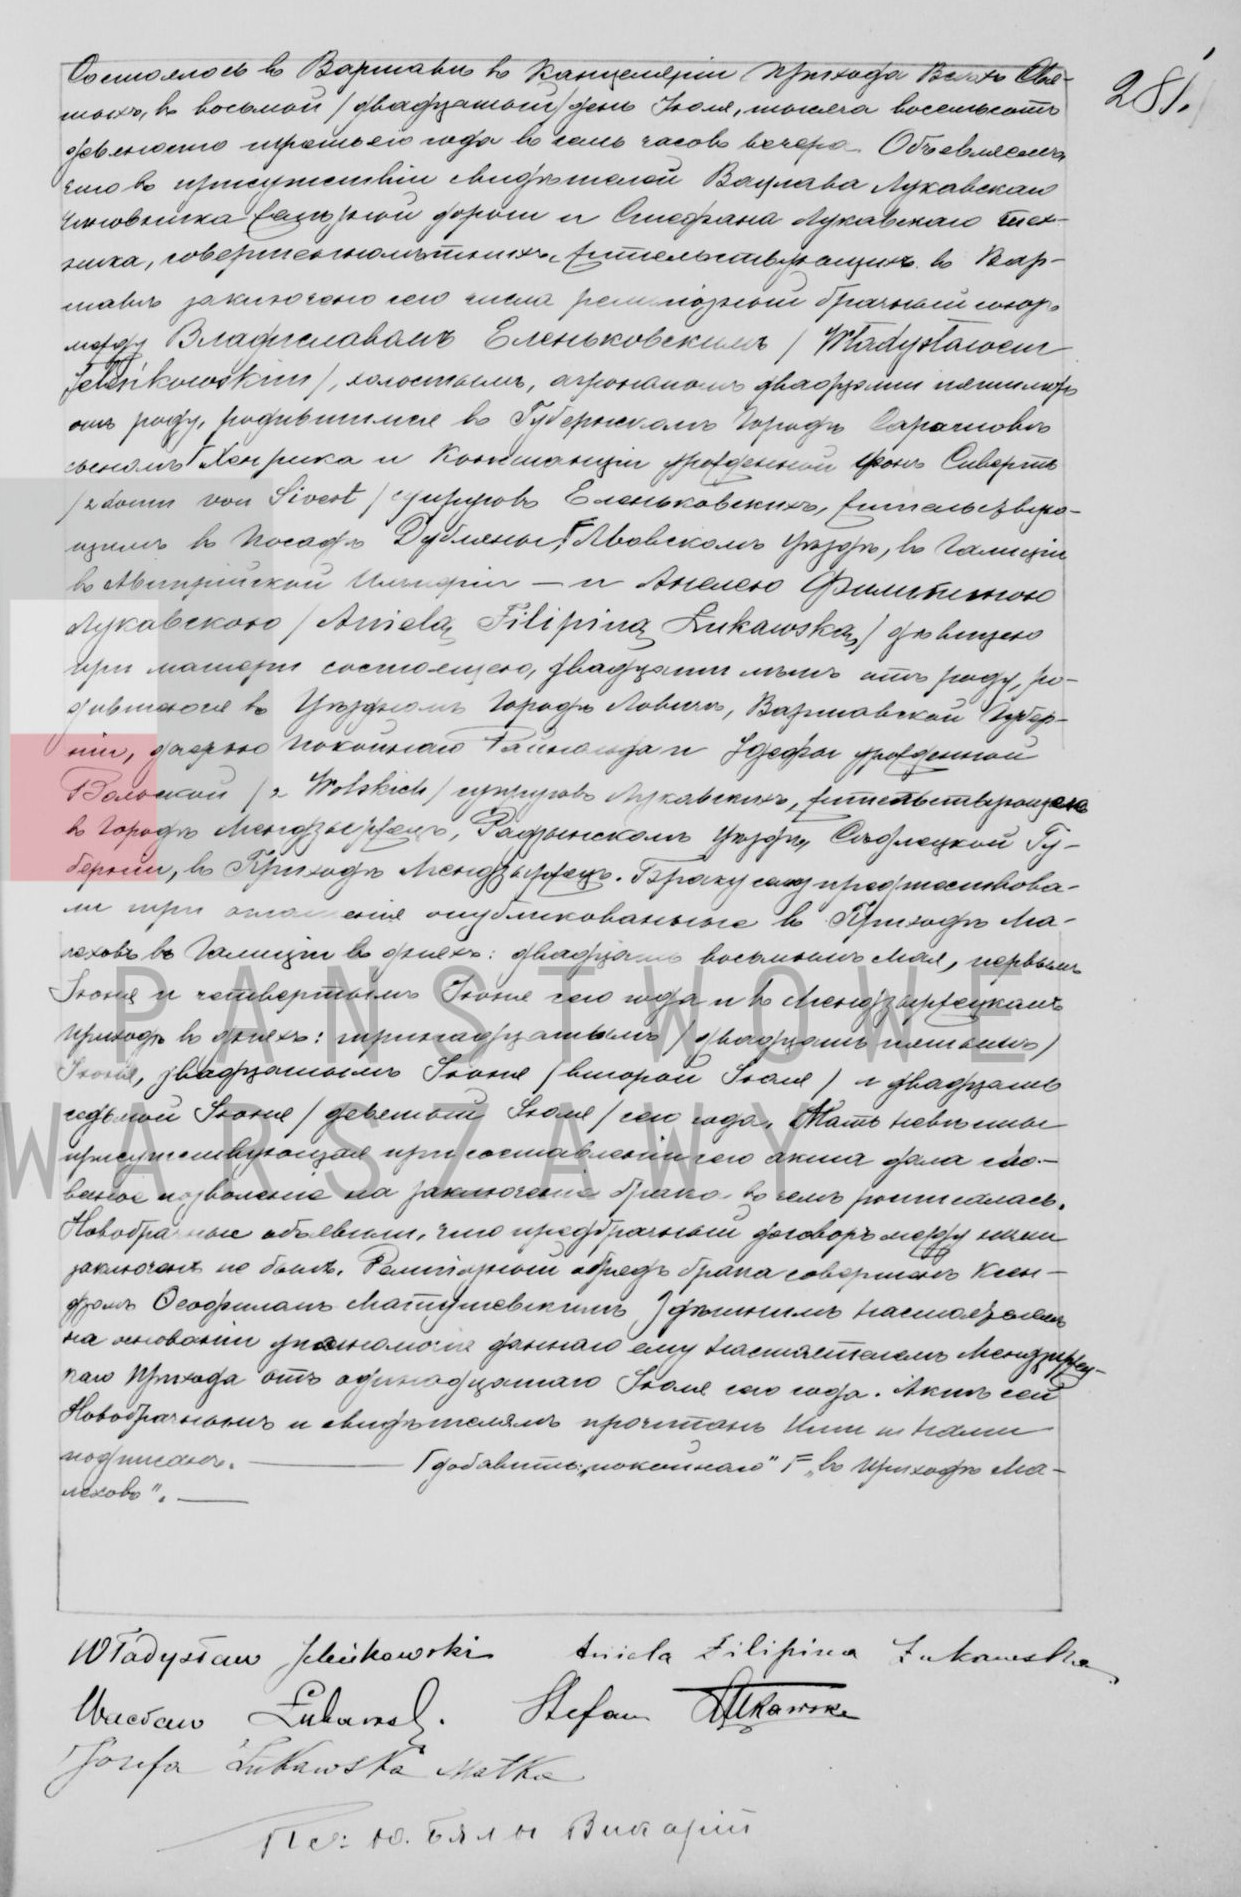 281.
Состоялось въ Варшавѣ въ Канцеляріи Прихода Всѣхъ Свя-
тыхъ, въ восьмой /двадцатый/ день Іюля, тысяча восемьсотъ
девяносто третьяго года въ семь часовъ вечера. Объявляемъ
что въ присутствіи свидѣтелей Вацлава Лукавскаго
чиновника желѣзной дороги и Стефана Лукавскаго тех-
ника, совершеннолѣтнихъ, жительствующихъ въ Вар-
шавѣ заключено сего числа религіозный брачный союзъ
между Владиславомъ Еленьковскимъ / Władysławem
Jeleńkowskim /, холостымъ, агрономомъ двадцати пяти лѣтъ
отъ роду, родившимся въ Губернскомъ Городѣ Саратовѣ
сыномъ Г Хенрика и Констанціи урожденной фонъ Сивертъ
/ z domu von Sivert / супруговъ Еленьковскихъ, жительствую-
щимъ въ Посадѣ Дубляны, F Львовскомъ Уѣздѣ, въ Галиціи
въ Австрійской Имперіи — и Анелею Филипиною
Лукавскою / Anielą Filipiną Łukawską / дѣвицею
при матери состоящею, двадцати лѣтъ отъ роду, ро-
дившеюся въ Уѣздномъ Городѣ Ловичѣ, Варшавской Губер-
ніи, дочерью покойнаго Райнольда и Юзефы урожденной
Вольской / z Wolskich / супруговъ Лукавскихъ, жительствующею
въ Городѣ Мендзыржецъ, Радзынскомъ Уѣздѣ, Сѣдлецкой Гу-
берніи, въ Приходѣ Мендзыржецъ. Браку сему предшествова-
ли три оглашенія опубликованные въ Приходѣ Ма-
леховъ въ Галиціи въ дняхъ: двадцать восьмымъ Мая, первымъ
Іюня и четвертымъ Іюня сего года и въ Мендзыржецкомъ
Приходѣ въ дняхъ: тринадцатымъ / двадцать пятымъ /
Іюня, двадцатымъ Іюня / второй Іюля / и двадцать
седьмой Іюня / девятый Іюля / сего года. Мать невѣсты
присутствующая при составленіи сего акта дала сло-
весное позволеніе на заключеніе брака въ чемъ росписалась.
Новобрачные объявили, что предбрачный договоръ между ними
заключенъ не былъ. Религіозный обрядъ брака совершенъ Ксен-
дзомъ Ѳеофиломъ Матушевскимъ здѣшнимъ настоятелемъ
на основаніи уполномочія даннаго ему настоятелемъ Мендзыржец-
каго Прихода отъ одинадцатаго Іюля сего года. Актъ сей
Новобрачнымъ и свидѣтелямъ прочитанъ Ими и Нами
подписанъ. ——— Г добавить: „покойнаго" F „въ Приходѣ Ма-
леховъ". —
Władysław Jeleńkowski Aniela Filipina Łukawska
Wacław Łukawski. Stefan Łukawski
Józefa Łukawska Matka
Кс: Ю. Бялы Викарій
PAŃSTWOWE
WARSZAWY